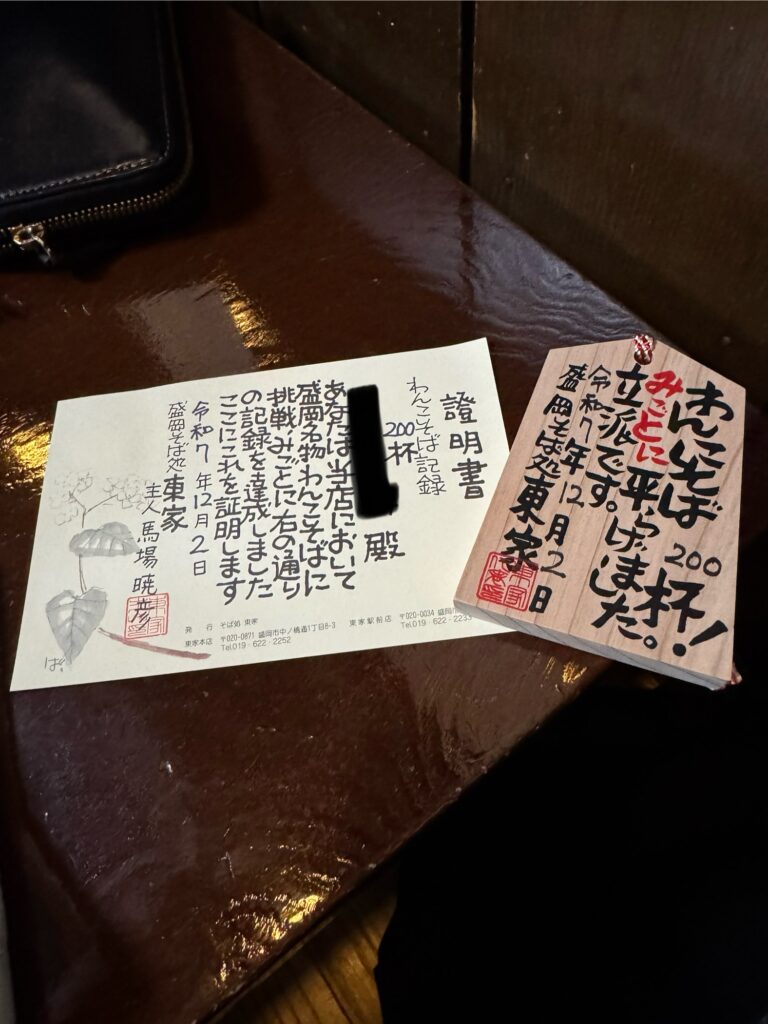 證明書
わんこそば記録
200杯
殿
あなたは当店において
盛岡名物わんこそばに
挑戦みごとに右の通り
の記録を達成しました
ここにこれを証明します
令和7年12月2日
盛岡そば処東家
主人 馬場暁彦
ばば
発行 そば処 東家
東家本店 〒020-0871 盛岡市中ノ橋通1丁目8-3
Tel.019・622・2252
東家駅前店 〒020-0034 盛岡市
Tel.019・622・2233
わんこそば200杯!
みごとに平らげました。
立派です。
令和7年12月2日
盛岡そば処東家